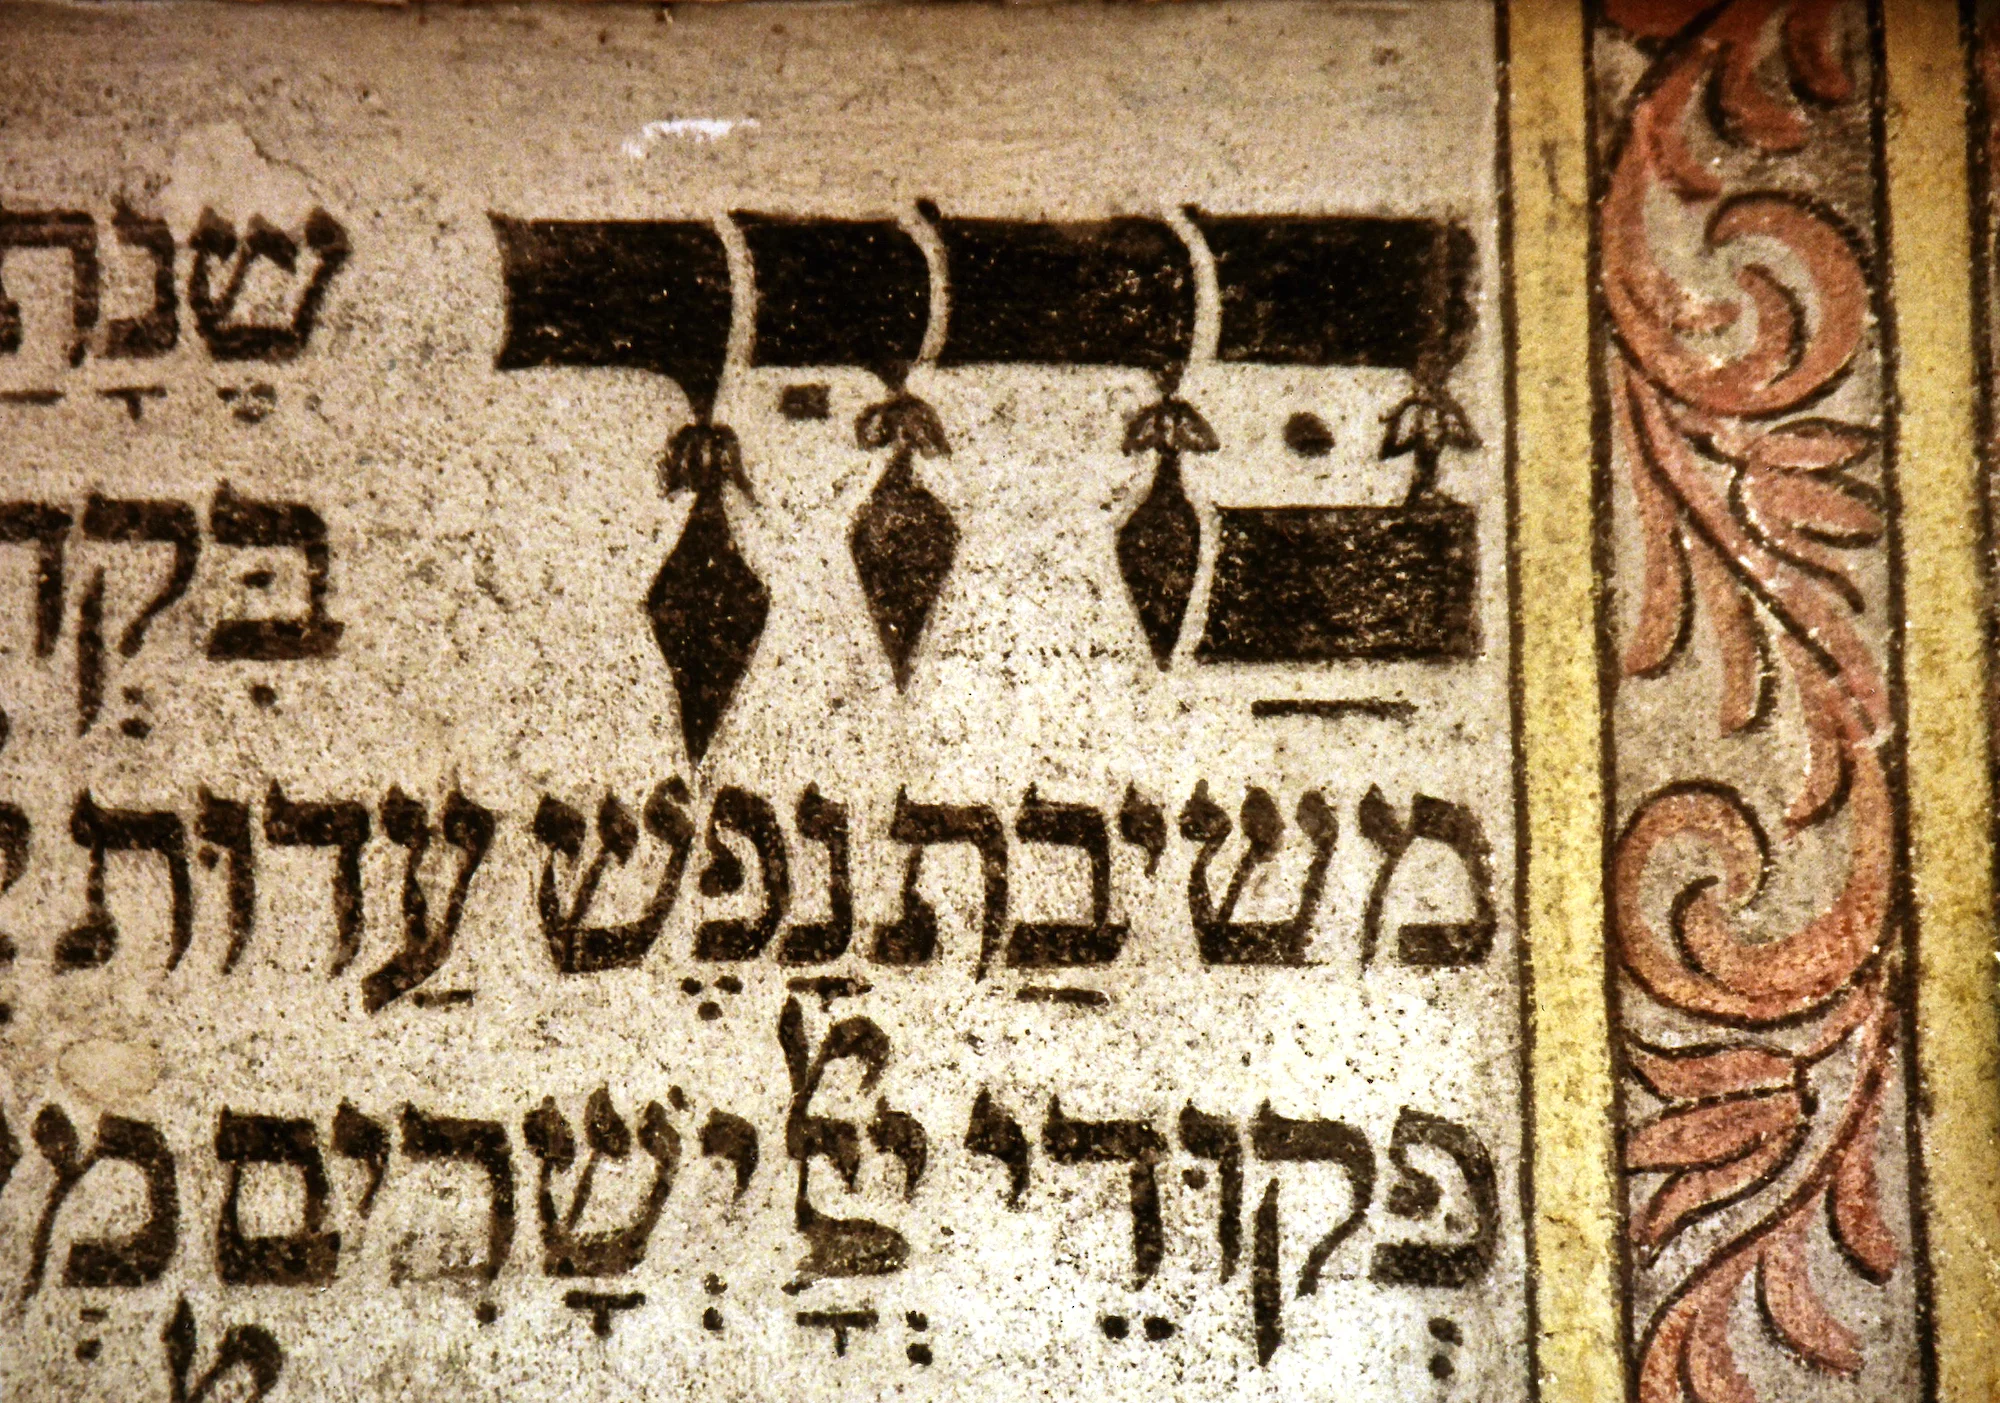 בַּרוּך שֶׁנָתַ
בִּקְד
משיבַת נָפֶש עַדוּת
פְקוּדֵי יְיָ יְשָׁרִים מְ